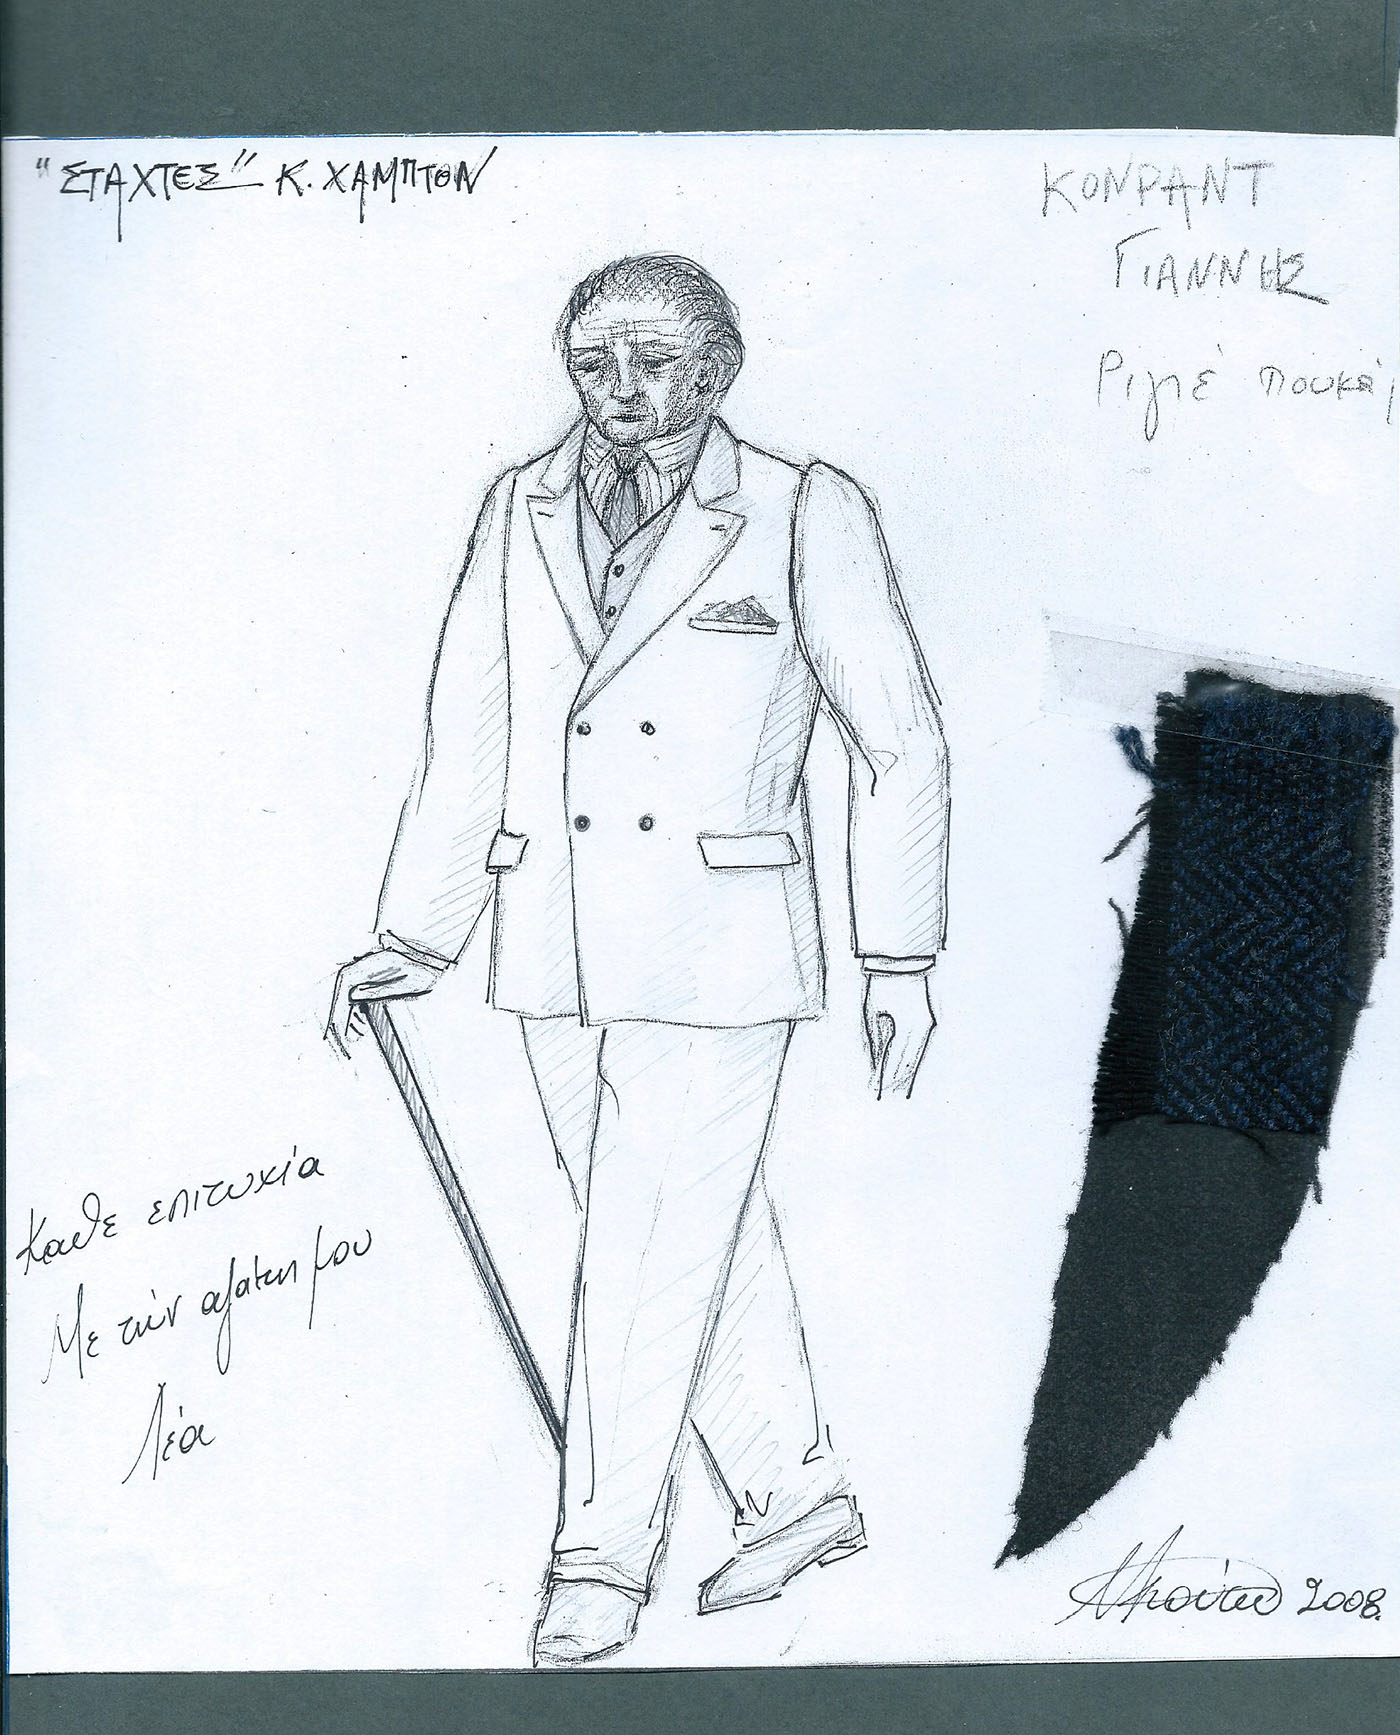 "ΣΤΑΧΤΕΣ" Κ. ΧΑΜΠΤΟΝ
ΚΟΝΡΑΝΤ
ΓΙΑΝΝΗΣ
Ριγέ πουκά
Κάθε επιτυχία
Με την αγάπη μου
Λέα
2008.